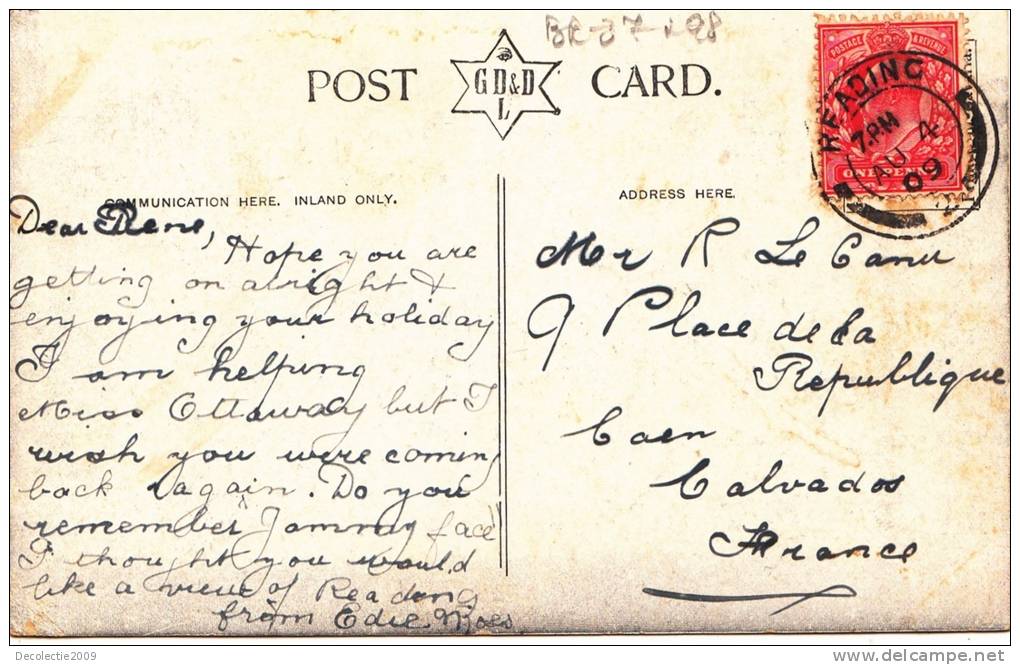 BR-37-198
POST CARD.
GD&D
L
POSTAGE & REVENUE
ONE PENNY
READING
7.PM
AU 4
09
COMMUNICATION HERE. INLAND ONLY.
ADDRESS HERE.
Dear Rene,
Hope you are
getting on alright &
enjoying your holiday
I am helping
Miss Ottaway but I
wish you were coming
back again. Do you
remember "Jammy face"
I thought you would
like a view of Reading
from Edie
Mr R Le Canu
9 Place de la
Republique
Caen
Calvados
France
Decolectie2009
delcampe.net